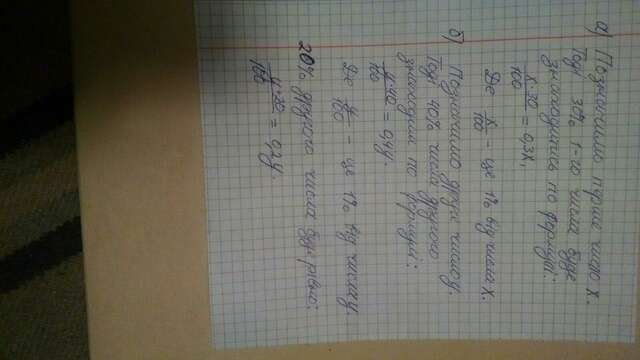 а) Позначимо перше число x.
Тоді 30% 1-го числа буде
знаходитись по формулі:
x·30/100 = 0,3x,
Де x/100 - це 1% від числа x.
б) Позначимо друге число y.
Тоді 40% числа другого
знаходим по формулі:
y·40/100 = 0,4y.
Де y/100 - це 1% від числа y.
20% другого числа буде рівно:
y·20/100 = 0,2y.